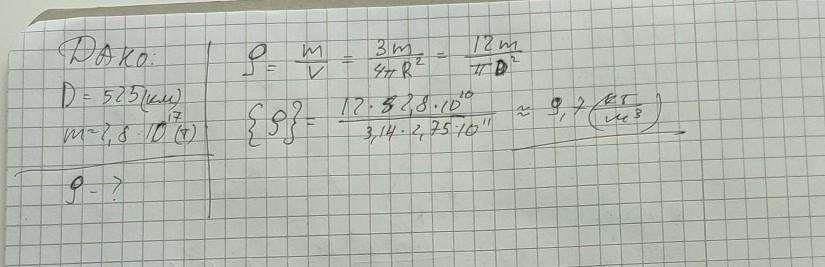 Дано:
D = 525 (км)
m = 2,8 · 10¹⁷ (т)
ρ - ?
ρ = m/V = 3m/4πR² = 12m/πD²
{ρ} = 12 · 2,8 · 10²⁰ / 3,14 · 2,75 · 10¹¹ ≈ 9,7 (кг/м³)